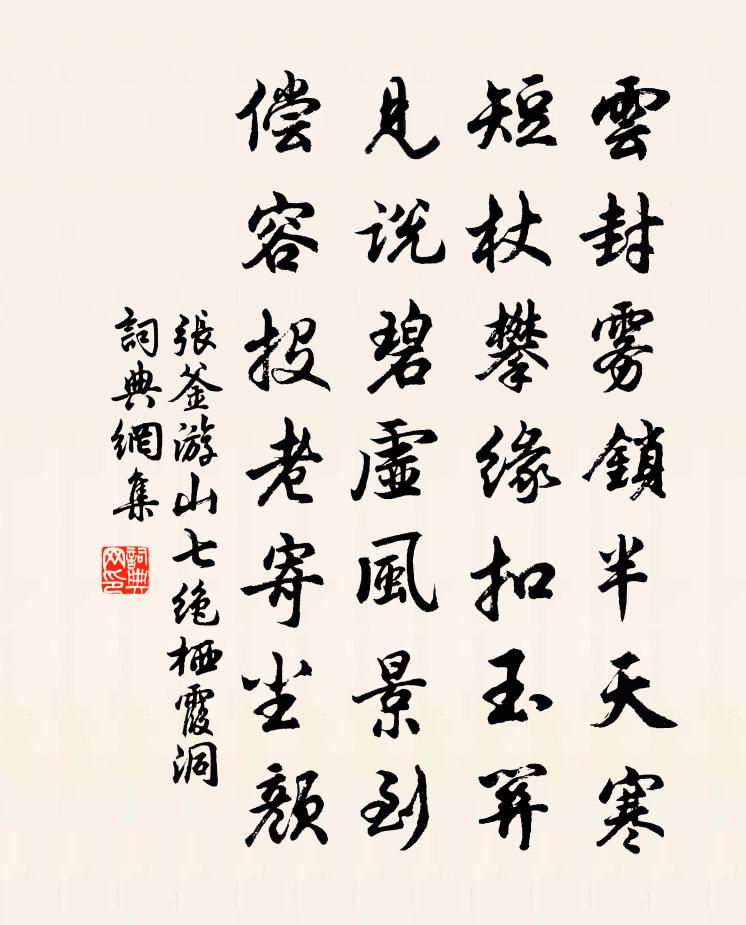 雲封雾鎖半天寒
短杖攀缘扣玉關
見说碧虛風景到
偿容投老寄尘顏
張釜游山七绝栖霞洞
詞典網集
詞典网印